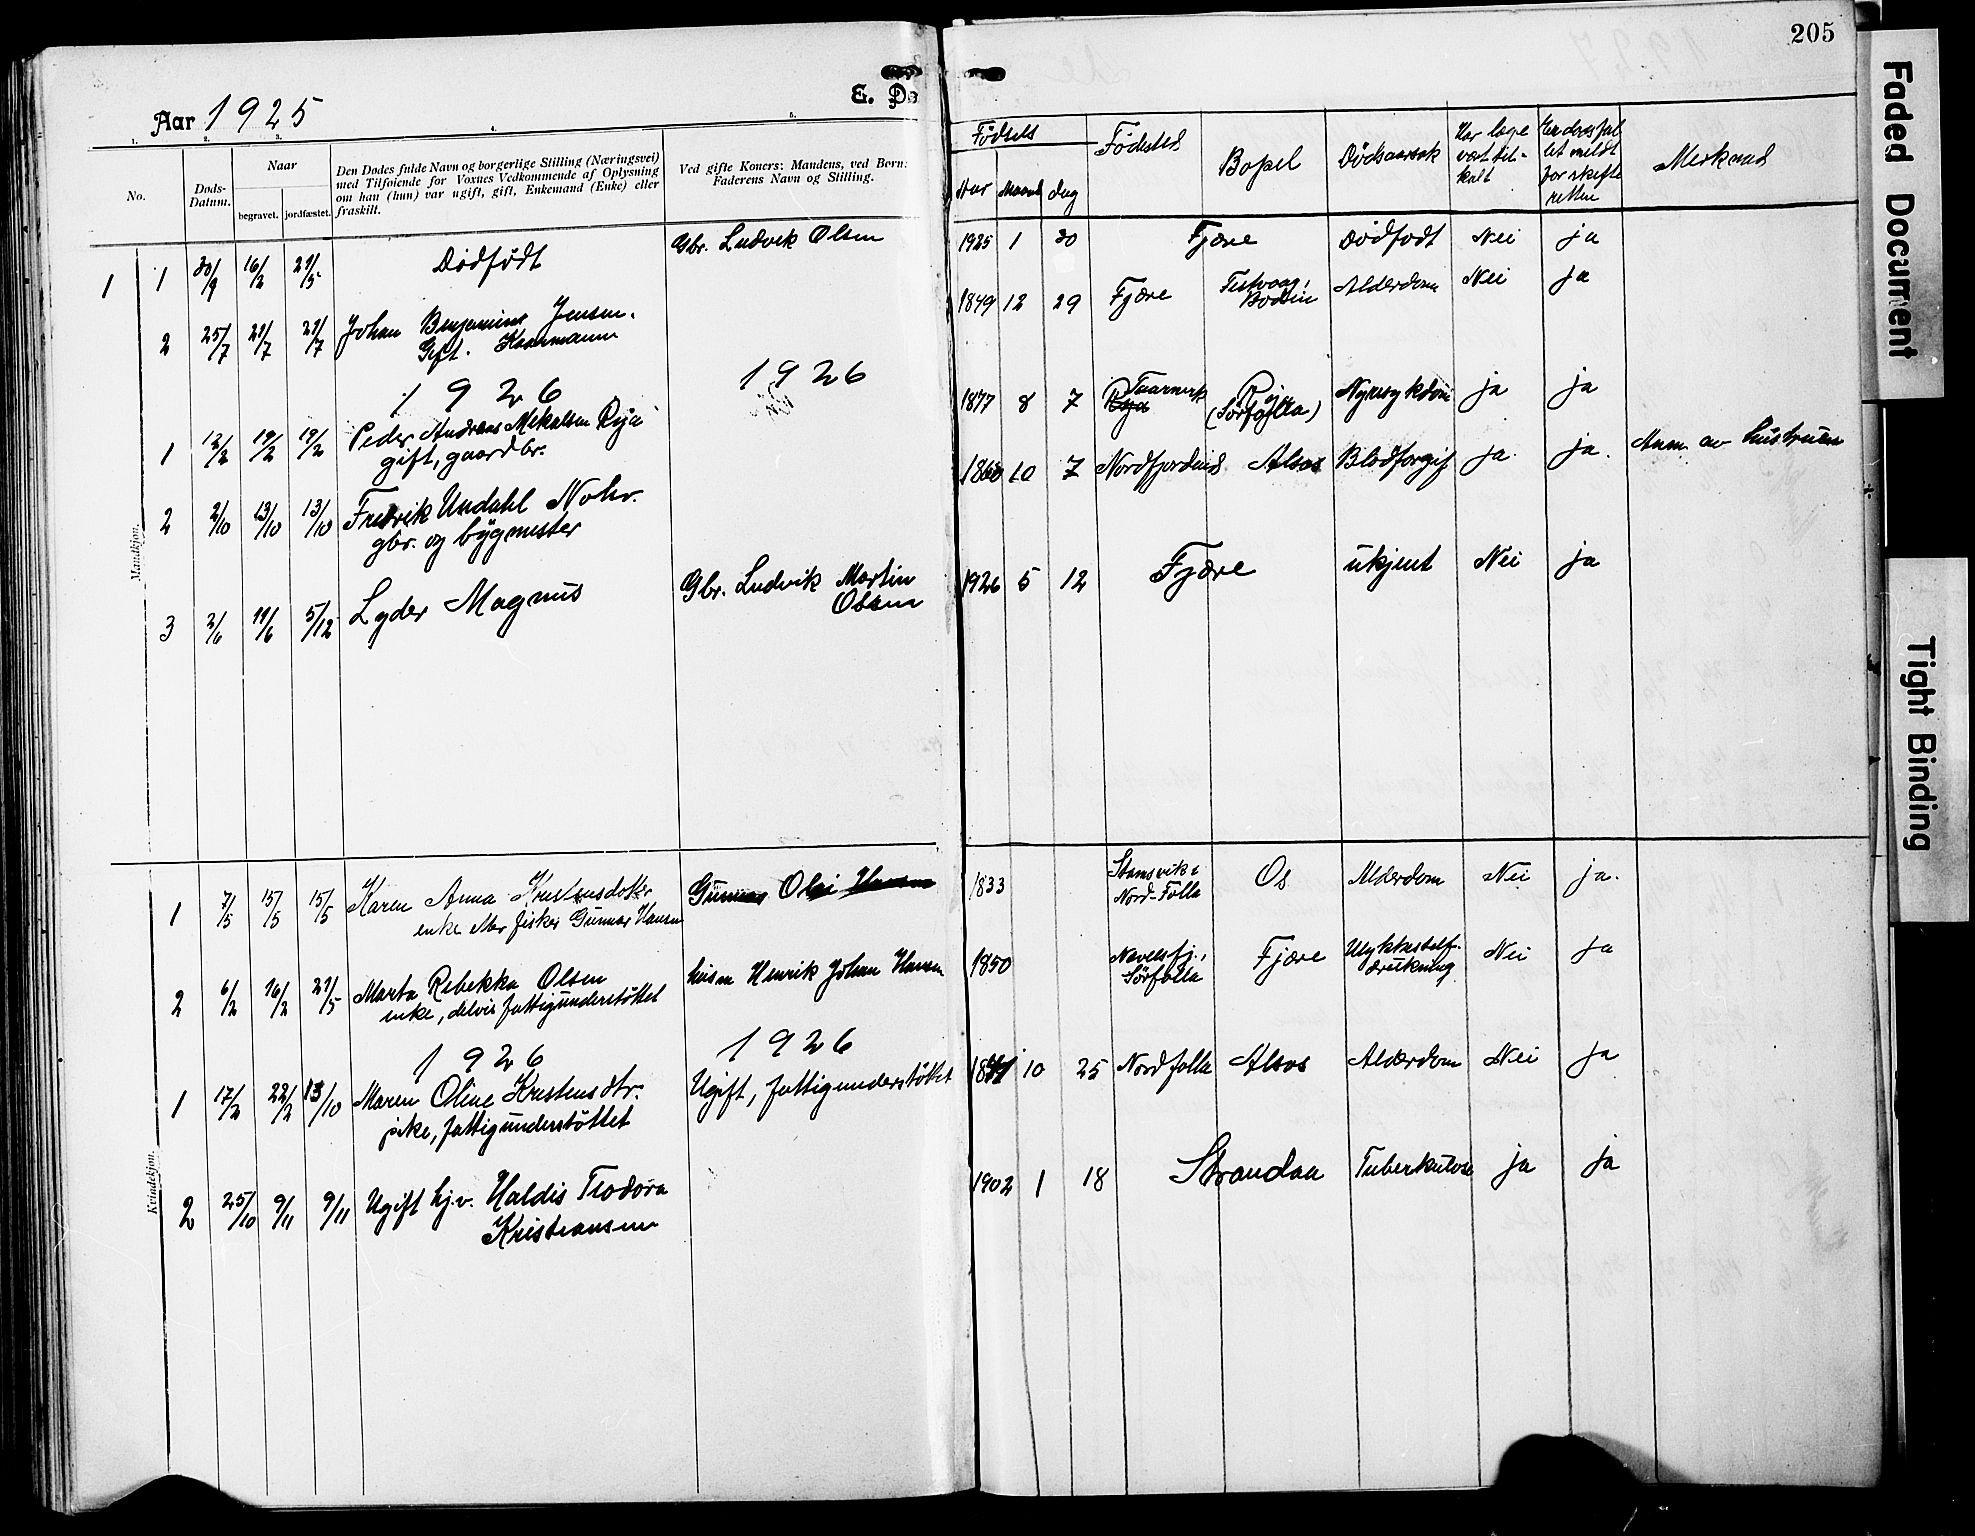 205
Faded Document
Tight Binding
Aar 1925
E. Dø
1. 2. 3. 4. 5.
No.
Døds-Datum.
Naar
begravet. jordfæstet.
Den Dødes fulde Navn og borgerlige Stilling (Næringsvei)
med Tilføiende for Voxnes Vedkommende af Oplysning
om han (hun) var ugift, gift, Enkemand (Enke) eller
fraskilt.
Ved gifte Koners: Mandens, ved Børn:
Faderens Navn og Stilling.
Fødsels
Aar Maaned dag
Fødested
Bopel
Dødsaarsak
Har læge
vært til-
kalt
Er dødsfal
let meldt
for skifte
retten
Merknad
Mandkjøn.
1 1 30/9 16/2 21/5 Dødfødt Gbr. Ludvik Olsen 1925 1 30 Fjære Dødfødt Nei ja
2 25/7 29/7 29/7 Johan Benjamins Jensen.
Gift. Kaarmann
1849 12 29 Fjære Festvaag,
Bodin
Alderdom Nei ja
1926 1926
1 12/2 19/2 19/2 Peder Andreas Mikalsen Røja
gift, gaardbr.
1877 8 7 Taarnvik
Røja
Røja
(Sørfolla)
Nyresykdom ja ja
2 2/10 13/10 13/10 Fredrik Undahl Nohr.
gbr. og bygmester
1860 10 7 Nordfjordeid Alsos Blodforgif ja ja. Anm. av hustruen
3 2/6 11/6 5/12 Lyder Magnus Gbr. Ludvik Martin
Olsen
1926 5 12 Fjære ukjent Nei ja
Kvindekjøn.
1 7/5 15/5 15/5 Karen Anna Kristensdotter
enke etter fisker Gunnar Hansen
Gunnar Olai Hansen 1833 Stamsvik i
Nord-Folla
Os Alderdom Nei ja.
2 6/2 16/2 21/5 Marta Rebekka Olsen
enke, delvis fattigunderstøttet
husm Henrik Johan Hansen 1850 Nevelsfj.,
Sørfolla
Fjære Ulykkestilf.
drukning
Nei ja
1926 1926
1 17/2 22/2 13/10 Maren Oline Kristensdtr.
pike, fattigunderstøttet
Ugift, fattigunderstøttet 10 25 Nordfolla Alsos Alderdom Nei ja
2 25/10 9/11 9/11 Ugift hj.v. Haldis Teodora
Kristiansen
1902 1 18 Strandaa Tuberkulose ja ja